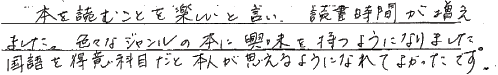 本を読むことを楽しいと言い、読書時間が増え
ました。色々なジャンルの本に興味を持つようになりました。
国語を得意科目だと本人が思えるようになれてよかったです。